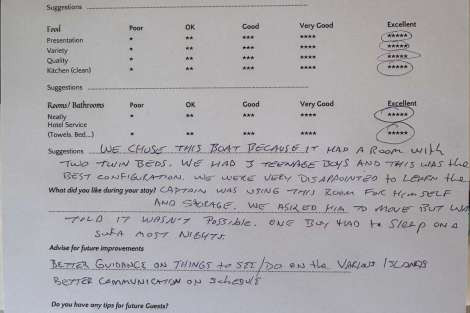 Suggestions
Food Poor OK Good Very Good Excellent
Presentation * ** *** **** *****
Variety * ** *** **** *****
Quality * ** *** **** *****
Kitchen (clean) * ** *** **** *****
Suggestions
Rooms/ Bathrooms Poor OK Good Very Good Excellent
Neatly * ** *** **** *****
Hotel Service
(Towels, Bed...) * ** *** **** *****
Suggestions WE CHOSE THIS BOAT BECAUSE IT HAD A ROOM WITH
TWO TWIN BEDS. WE HAD 3 TEENAGE BOYS AND THIS WAS the
BEST CONFIGURATION. WE WERE VERY DISAPPOINTED to LEARN the
What did you like during your stay? CAPTAIN WAS USING THIS ROOM FOR HIMSELF
AND STORAGE. WE ASKED HIM TO MOVE BUT WE
TOLD IT WASN'T POSSIBLE. ONE BOY HAD to SLEEP ON A
SOFA MOST NIGHTS.
Advise for future improvements
BETTER GUIDANCE ON THINGS to SEE/DO ON the VARIOUS ISLANDS
BETTER COMMUNICATION ON SCHEDULE
Do you have any tips for future Guests?